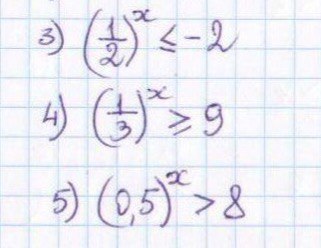 3) (1/2)^x ≤ -2
4) (1/3)^x ≥ 9
5) (0,5)^x > 8